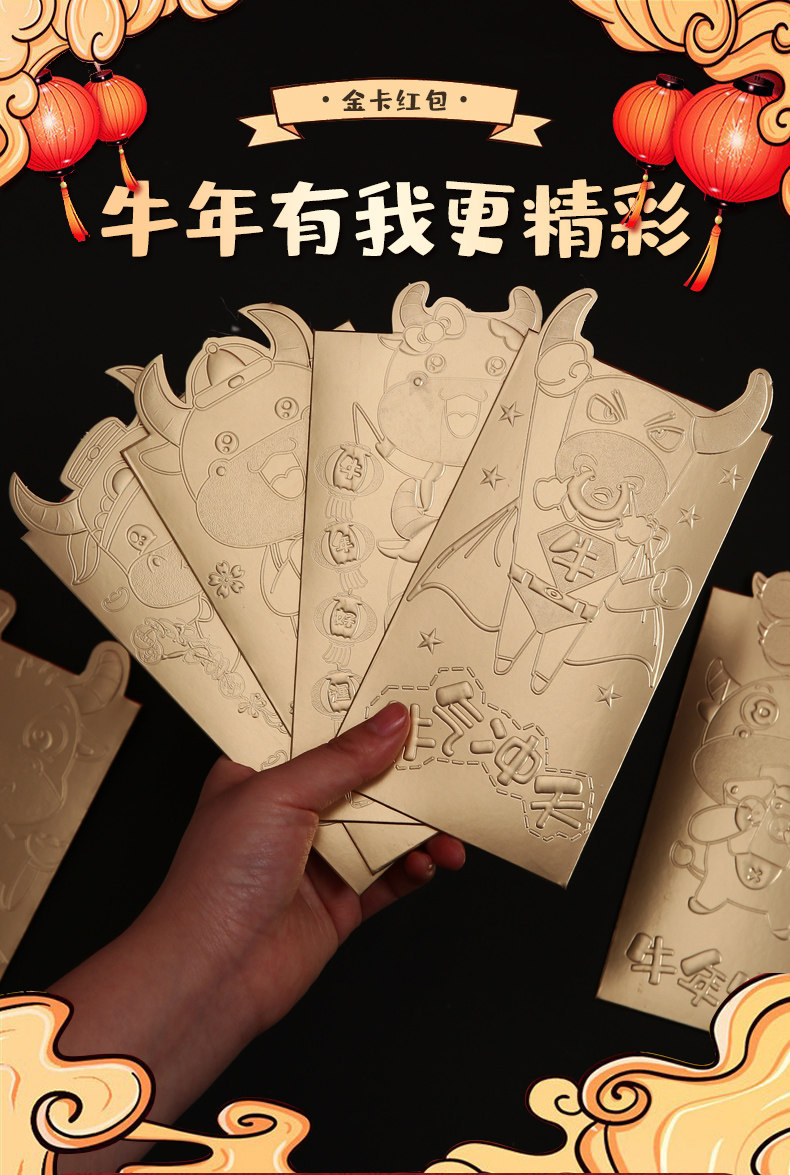 ·金卡红包·
牛年有我更精彩
牛
牛
牛气冲天
牛年